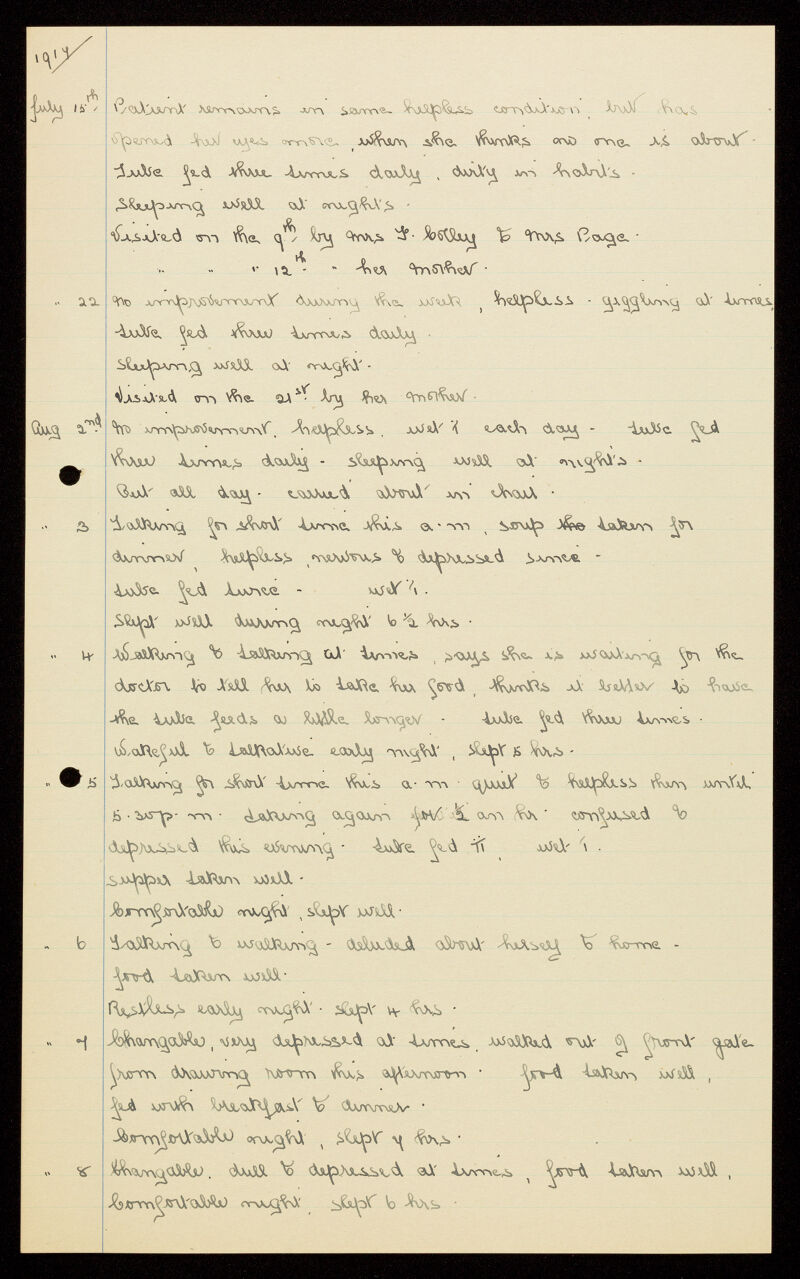 1917
July 15th Patient remains in same helpless condition, but has
opened her eyes more, when she thinks no one is about.
Tube fed three times daily, dirty in habits.
Sleeping well at night's.
Visited on the 9th by Mrs F. Colley & Mrs Page.
" " " 12th " her mother.
" 22 No improvement during the week, helpless - giggling at times,
tube fed three times daily.
Sleeping well at night.
Visited on the 21st by her mother.
Aug 2nd No improvement, helpless, wet 1 each day - tube fed
three times daily - sleeping well at night's.
But all day. carried about in chair.
" 3 Talking for short time this a.m, soup the taken for
dinner, helpless, nervous & depressed since -
tube fed twice - wet 1/1.
Slept well during night 6 1/2 hrs.
" 4 Walking & talking at times, says she is waiting for the
doctor to tell her to take her food, thinks it better to have
the tube feeds a little longer - tube fed three times.
Wakeful & talkative early night, slept 5 hrs.
" 5 Talking for short time this a.m. quiet & helpless then until
5.30 p.m. taking again for 1/2 an hr. confused &
depressed this evening. tube fed II, wet 1.
supper taken well.
Comfortable night, slept well.
" 6 Talking & walking - deluded about herself & home -
food taken well.
Restless early night. slept 4 hrs.
" 7 Changable, very depressed at times, walked out of front gate
from drawing room this afternoon. food taken well,
fed with breakfast & dinner.
Comfortable night, slept 7 hrs.
" 8 Changable. dull & depressed at times, food taken well,
Comfortable night, slept 6 hrs.